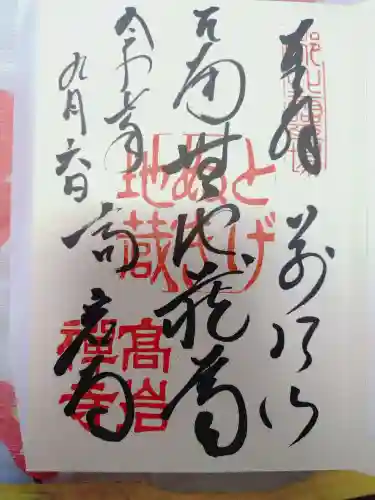 奉拝 萬頂山
南無地蔵尊
令和六年
九月六日
高岩寺
とげ
ぬき
地蔵
高岩
禅寺